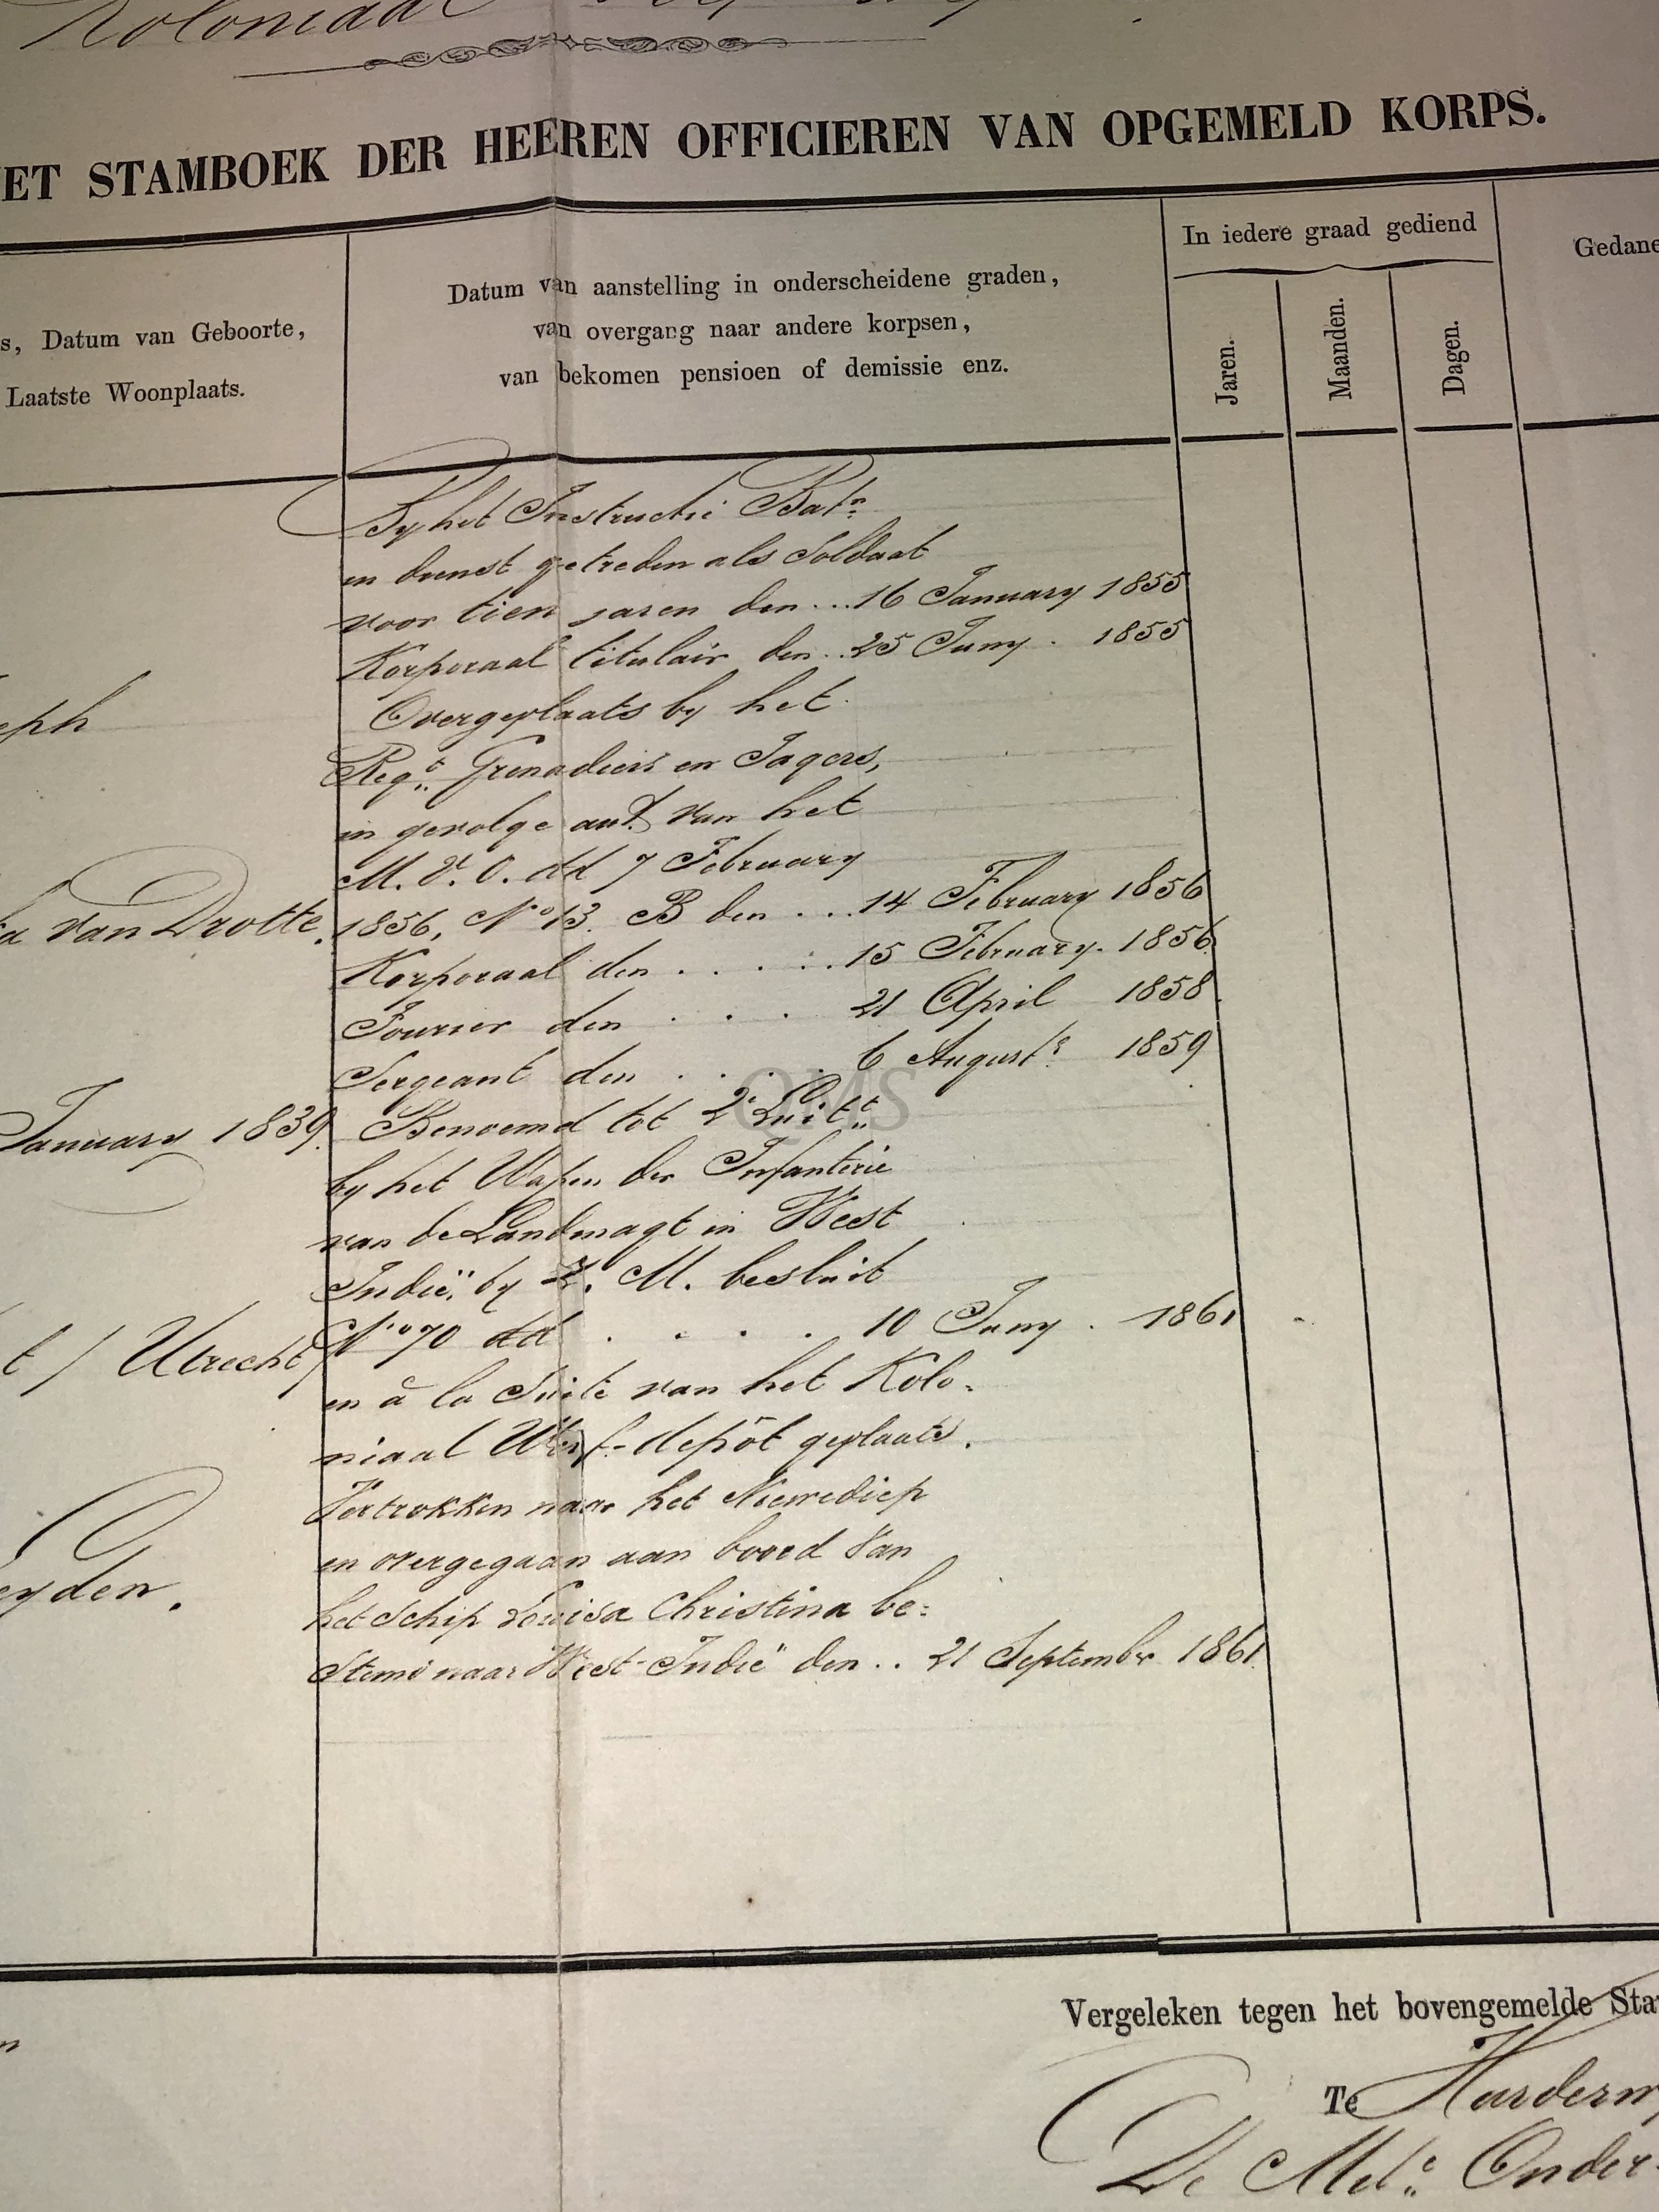 Koloniaal
ET STAMBOEK DER HEEREN OFFICIEREN VAN OPGEMELD KORPS.
s, Datum van Geboorte,
Laatste Woonplaats.
Datum van aanstelling in onderscheidene graden,
van overgang naar andere korpsen,
van bekomen pensioen of demissie enz.
In iedere graad gediend
Jaren.
Maanden.
Dagen.
Gedane
By het Instructie Batn
in dienst getreden als Soldaat
voor tien jaren den ... 16 January 1855
Korporaal titulair den .. 25 Juny . 1855
Overgeplaats by het
eph
Regt Grenadiers en Jagers,
in gevolge aut. van het
M. v. O. dd 7 February
a van Drotte.
1856, No 13. B den ... 14 February 1856
Korporaal den . . . . . . 15 February. 1856.
Fourier den . . . 21 April 1858.
Sergeant den . . . . 6 Augusts 1859
QMS
January 1839.
Benoemd tot 2e Luitt
by het Wapen der Infanterie
van de Landmagt in West
Indië, by Z. M. besluit
t / Utrecht /
No 70 dd . . . . 10 Juny . 1861
en à la Suite van het Kolo-
niaal Werf-depôt geplaats.
Vertrokken naar het Nieuwediep
en overgegaan aan boord van
eyden.
het Schip Louisa Christina be=
stemd naar West-Indië den .. 21 September 1861.
Vergeleken tegen het bovengemelde Sta
Te Harderw
De Mdr. Onder-